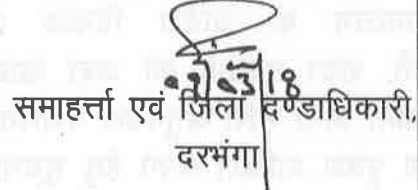 समाहर्त्ता एवं जिला दण्डाधिकारी,
दरभंगा